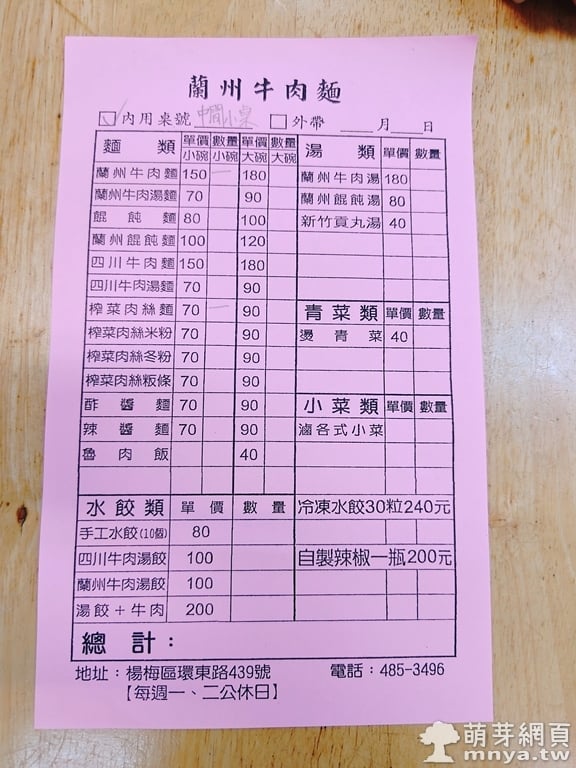 蘭州牛肉麵
☑內用桌號 中間小桌 □外帶 ___月___日
麵類 單價小碗 數量小碗 單價大碗 數量大碗
蘭州牛肉麵 150 一 180
蘭州牛肉湯麵 70 90
餛飩麵 80 100
蘭州餛飩麵 100 120
四川牛肉麵 150 180
四川牛肉湯麵 70 90
榨菜肉絲麵 70 一 90
榨菜肉絲米粉 70 90
榨菜肉絲冬粉 70 90
榨菜肉絲粄條 70 90
酢醬麵 70 90
辣醬麵 70 90
魯肉飯 40
湯類 單價 數量
蘭州牛肉湯 180
蘭州餛飩湯 80
新竹貢丸湯 40
青菜類 單價 數量
燙青菜 40
小菜類 單價 數量
滷各式小菜
水餃類 單價 數量
手工水餃(10個) 80
四川牛肉湯餃 100
蘭州牛肉湯餃 100
湯餃+牛肉 200
冷凍水餃30粒240元
自製辣椒一瓶200元
總計：
地址：楊梅區環東路439號 電話：485-3496
【每週一、二公休日】
萌芽網頁
mnya.tw